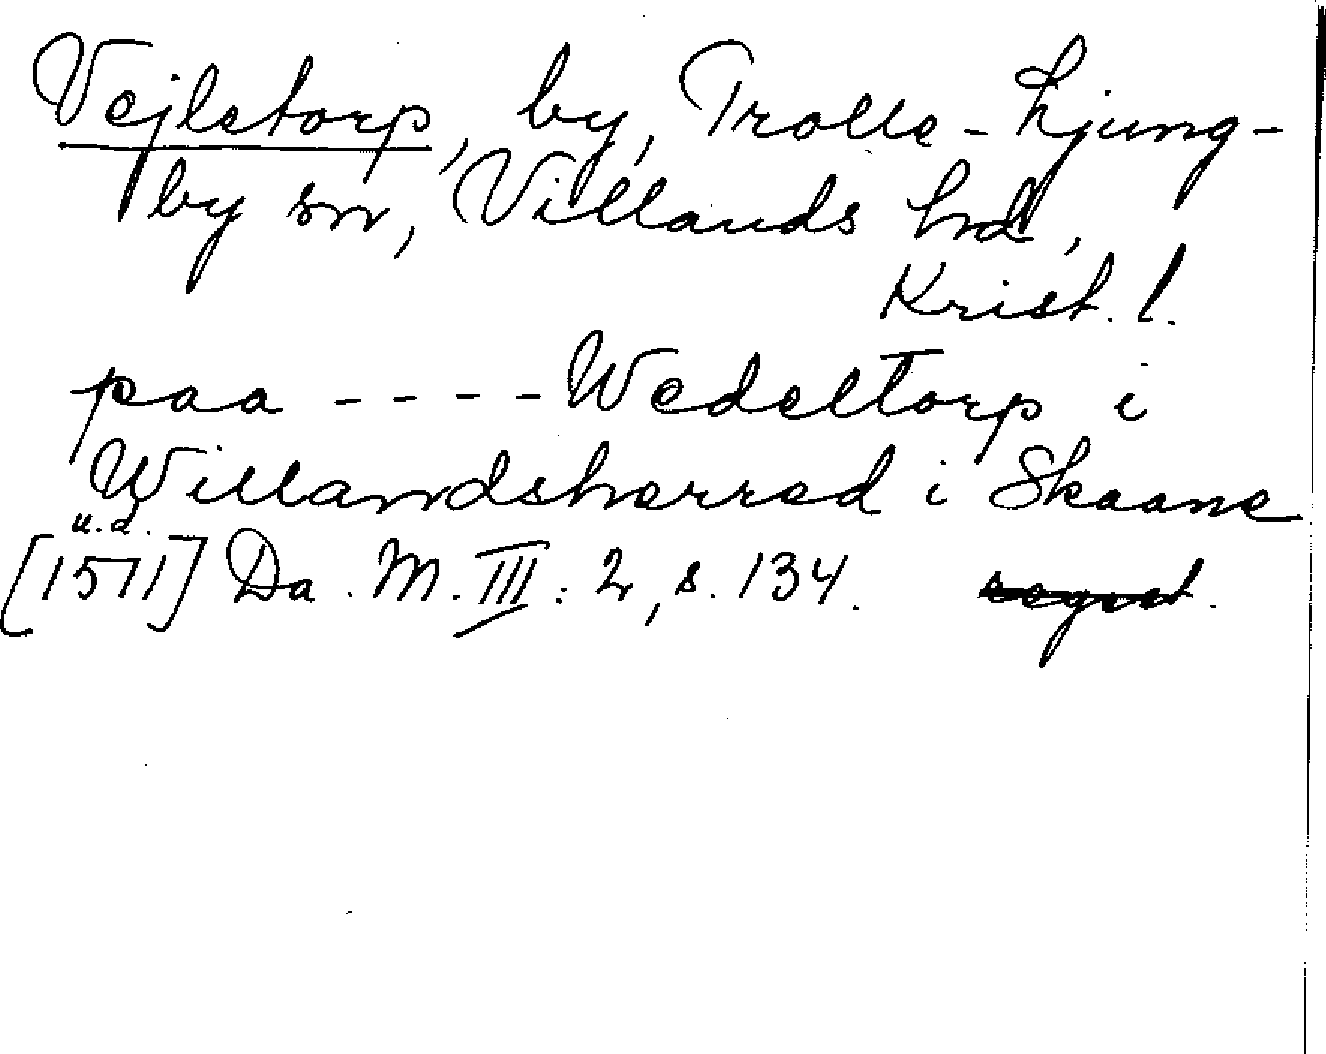 Vejletorp, by, Trolle-Ljung-
by sn, Villands hd,
Krist. l.
paa ---- Wedeltorp i
Willandsherred i Skaane
u.d.
[1571] Da. M. III: 2, s. 134. regist.